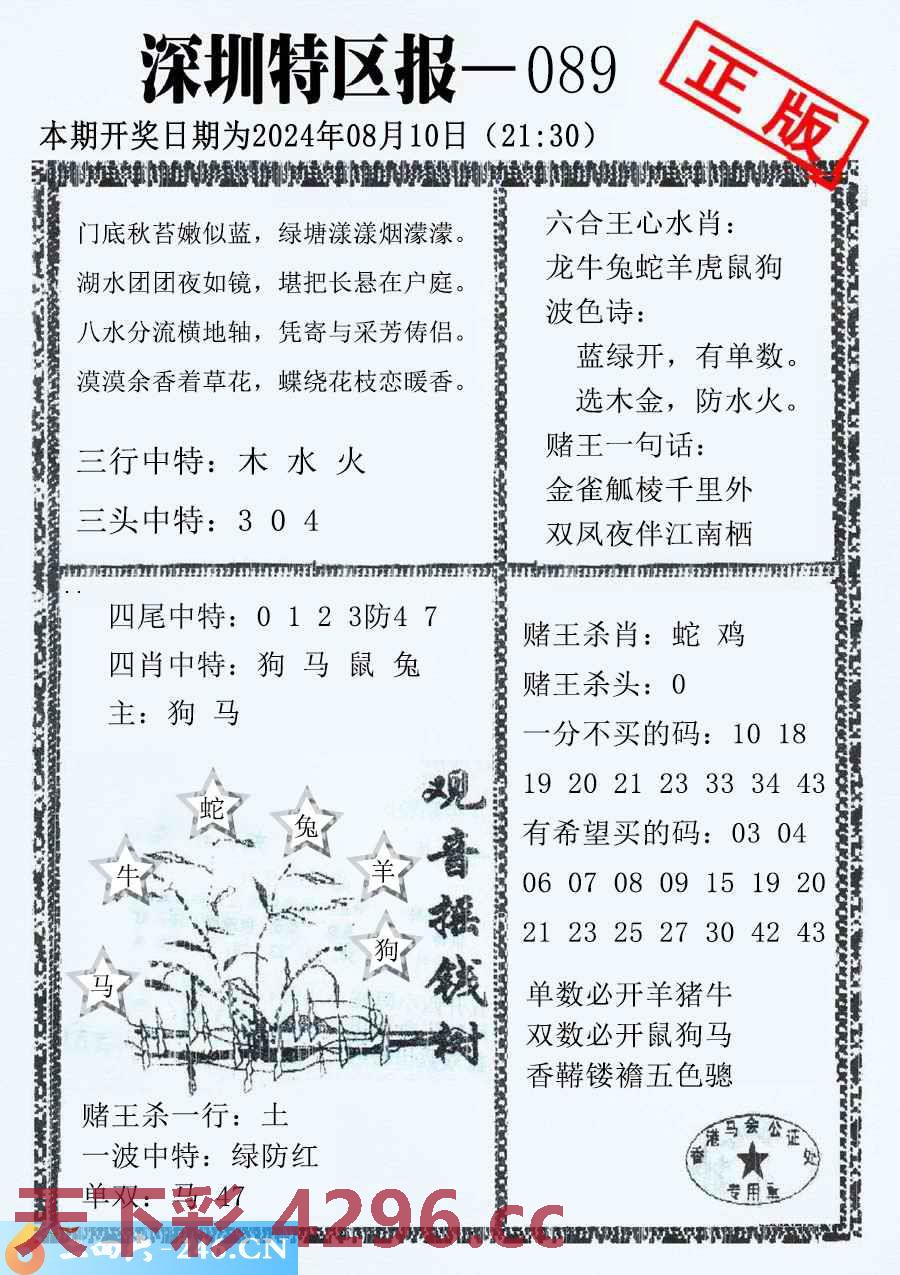 深圳特区报－089
正版
本期开奖日期为2024年08月10日（21:30）
门底秋苔嫩似蓝，绿塘漾漾烟濛濛。
湖水团团夜如镜，堪把长悬在户庭。
八水分流横地轴，凭寄与采芳俦侣。
漠漠余香着草花，蝶绕花枝恋暖香。
三行中特：木 水 火
三头中特：3 0 4
六合王心水肖：
龙牛兔蛇羊虎鼠狗
波色诗：
蓝绿开，有单数。
选木金，防水火。
赌王一句话：
金雀觚棱千里外
双凤夜伴江南栖
四尾中特：0 1 2 3防4 7
四肖中特：狗 马 鼠 兔
主：狗 马
蛇
兔
牛
羊
狗
马
观音摇钱树
赌王杀一行：土
一波中特：绿防红
单双：马 47
赌王杀肖：蛇 鸡
赌王杀头：0
一分不买的码：10 18
19 20 21 23 33 34 43
有希望买的码：03 04
06 07 08 09 15 19 20
21 23 25 27 30 42 43
单数必开羊猪牛
双数必开鼠狗马
香鞯镂襜五色骢
香港马会公证处
专用章
天下彩 4296.cc
246.CN